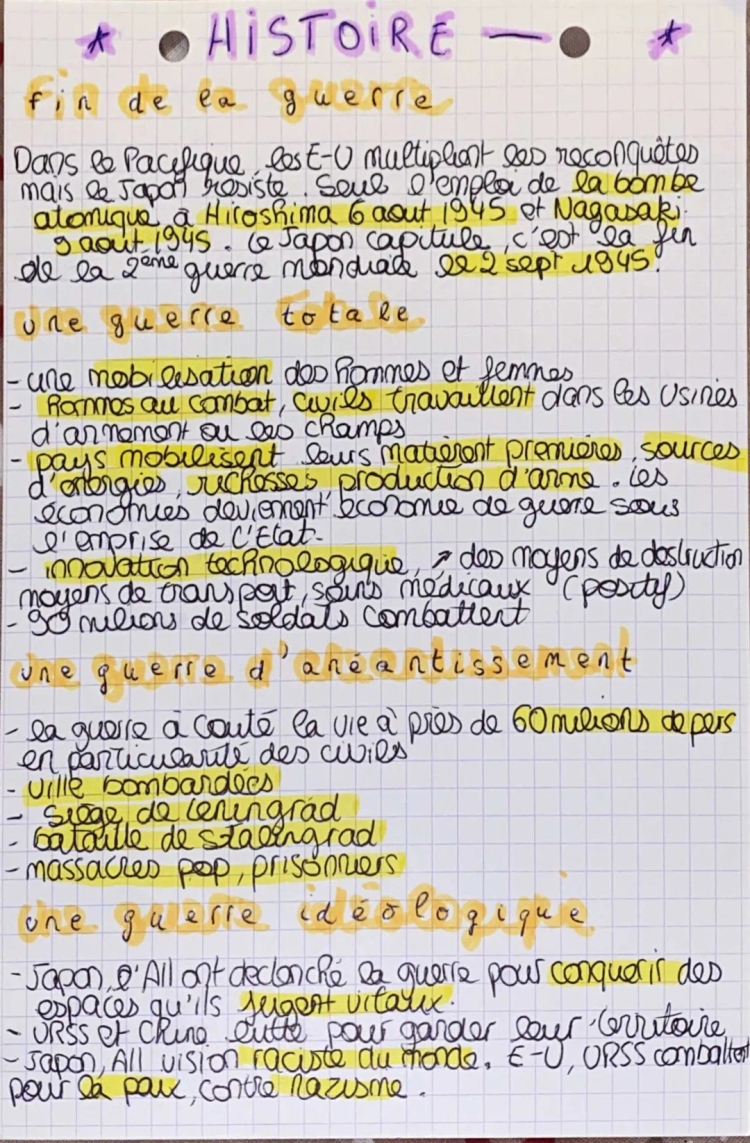 HISTOIRE
fin de la guerre
Dans le Pacifique, les E-U multiplient les reconquêtes
mais le Japon résiste. Seul l'emploi de la bombe
atomique à Hiroshima 6 aout 1945 et Nagasaki
9 aout 1945. Le Japon capitule, c'est la fin
de la 2ème guerre mondiale le 2 sept 1945.
une guerre totale
- une mobilisation des hommes et femmes
- hommes au combat, civils travaillent dans les usines
d'armement ou les champs
- pays mobilisent leurs matièrent premières, sources
d'énergies, richesses production d'arme. les
économies deviennent économie de guerre sous
l'emprise de l'Etat.
- innovation technologique, ↗ des moyens de destruction
moyens de transport, soins médicaux (positif)
- 90 milions de soldats combattent
une guerre d'anéantissement
- la guerre à couté la vie à près de 60 milions de pers
en particularité des civils
- ville bombardées
- siège de Leningrad
- bataille de stalingrad
- massacres pop, prisonniers
une guerre idéologique
- Japon, l'All ont declenché la guerre pour conquerir des
espaces qu'ils jugent vitaux.
- URSS et Chine lutte pour garder leur territoire
- Japon, All vision raciste du monde. E-U, URSS combattent
pour la paix, contre nazisme.